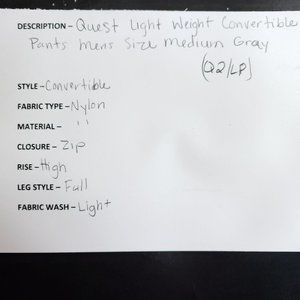 DESCRIPTION – Quest Light Weight Convertible
Pants Mens Size Medium Gray
(Q2/LP)
STYLE – Convertible
FABRIC TYPE – Nylon
MATERIAL – ''
CLOSURE – Zip
RISE – High
LEG STYLE – Full
FABRIC WASH – Light